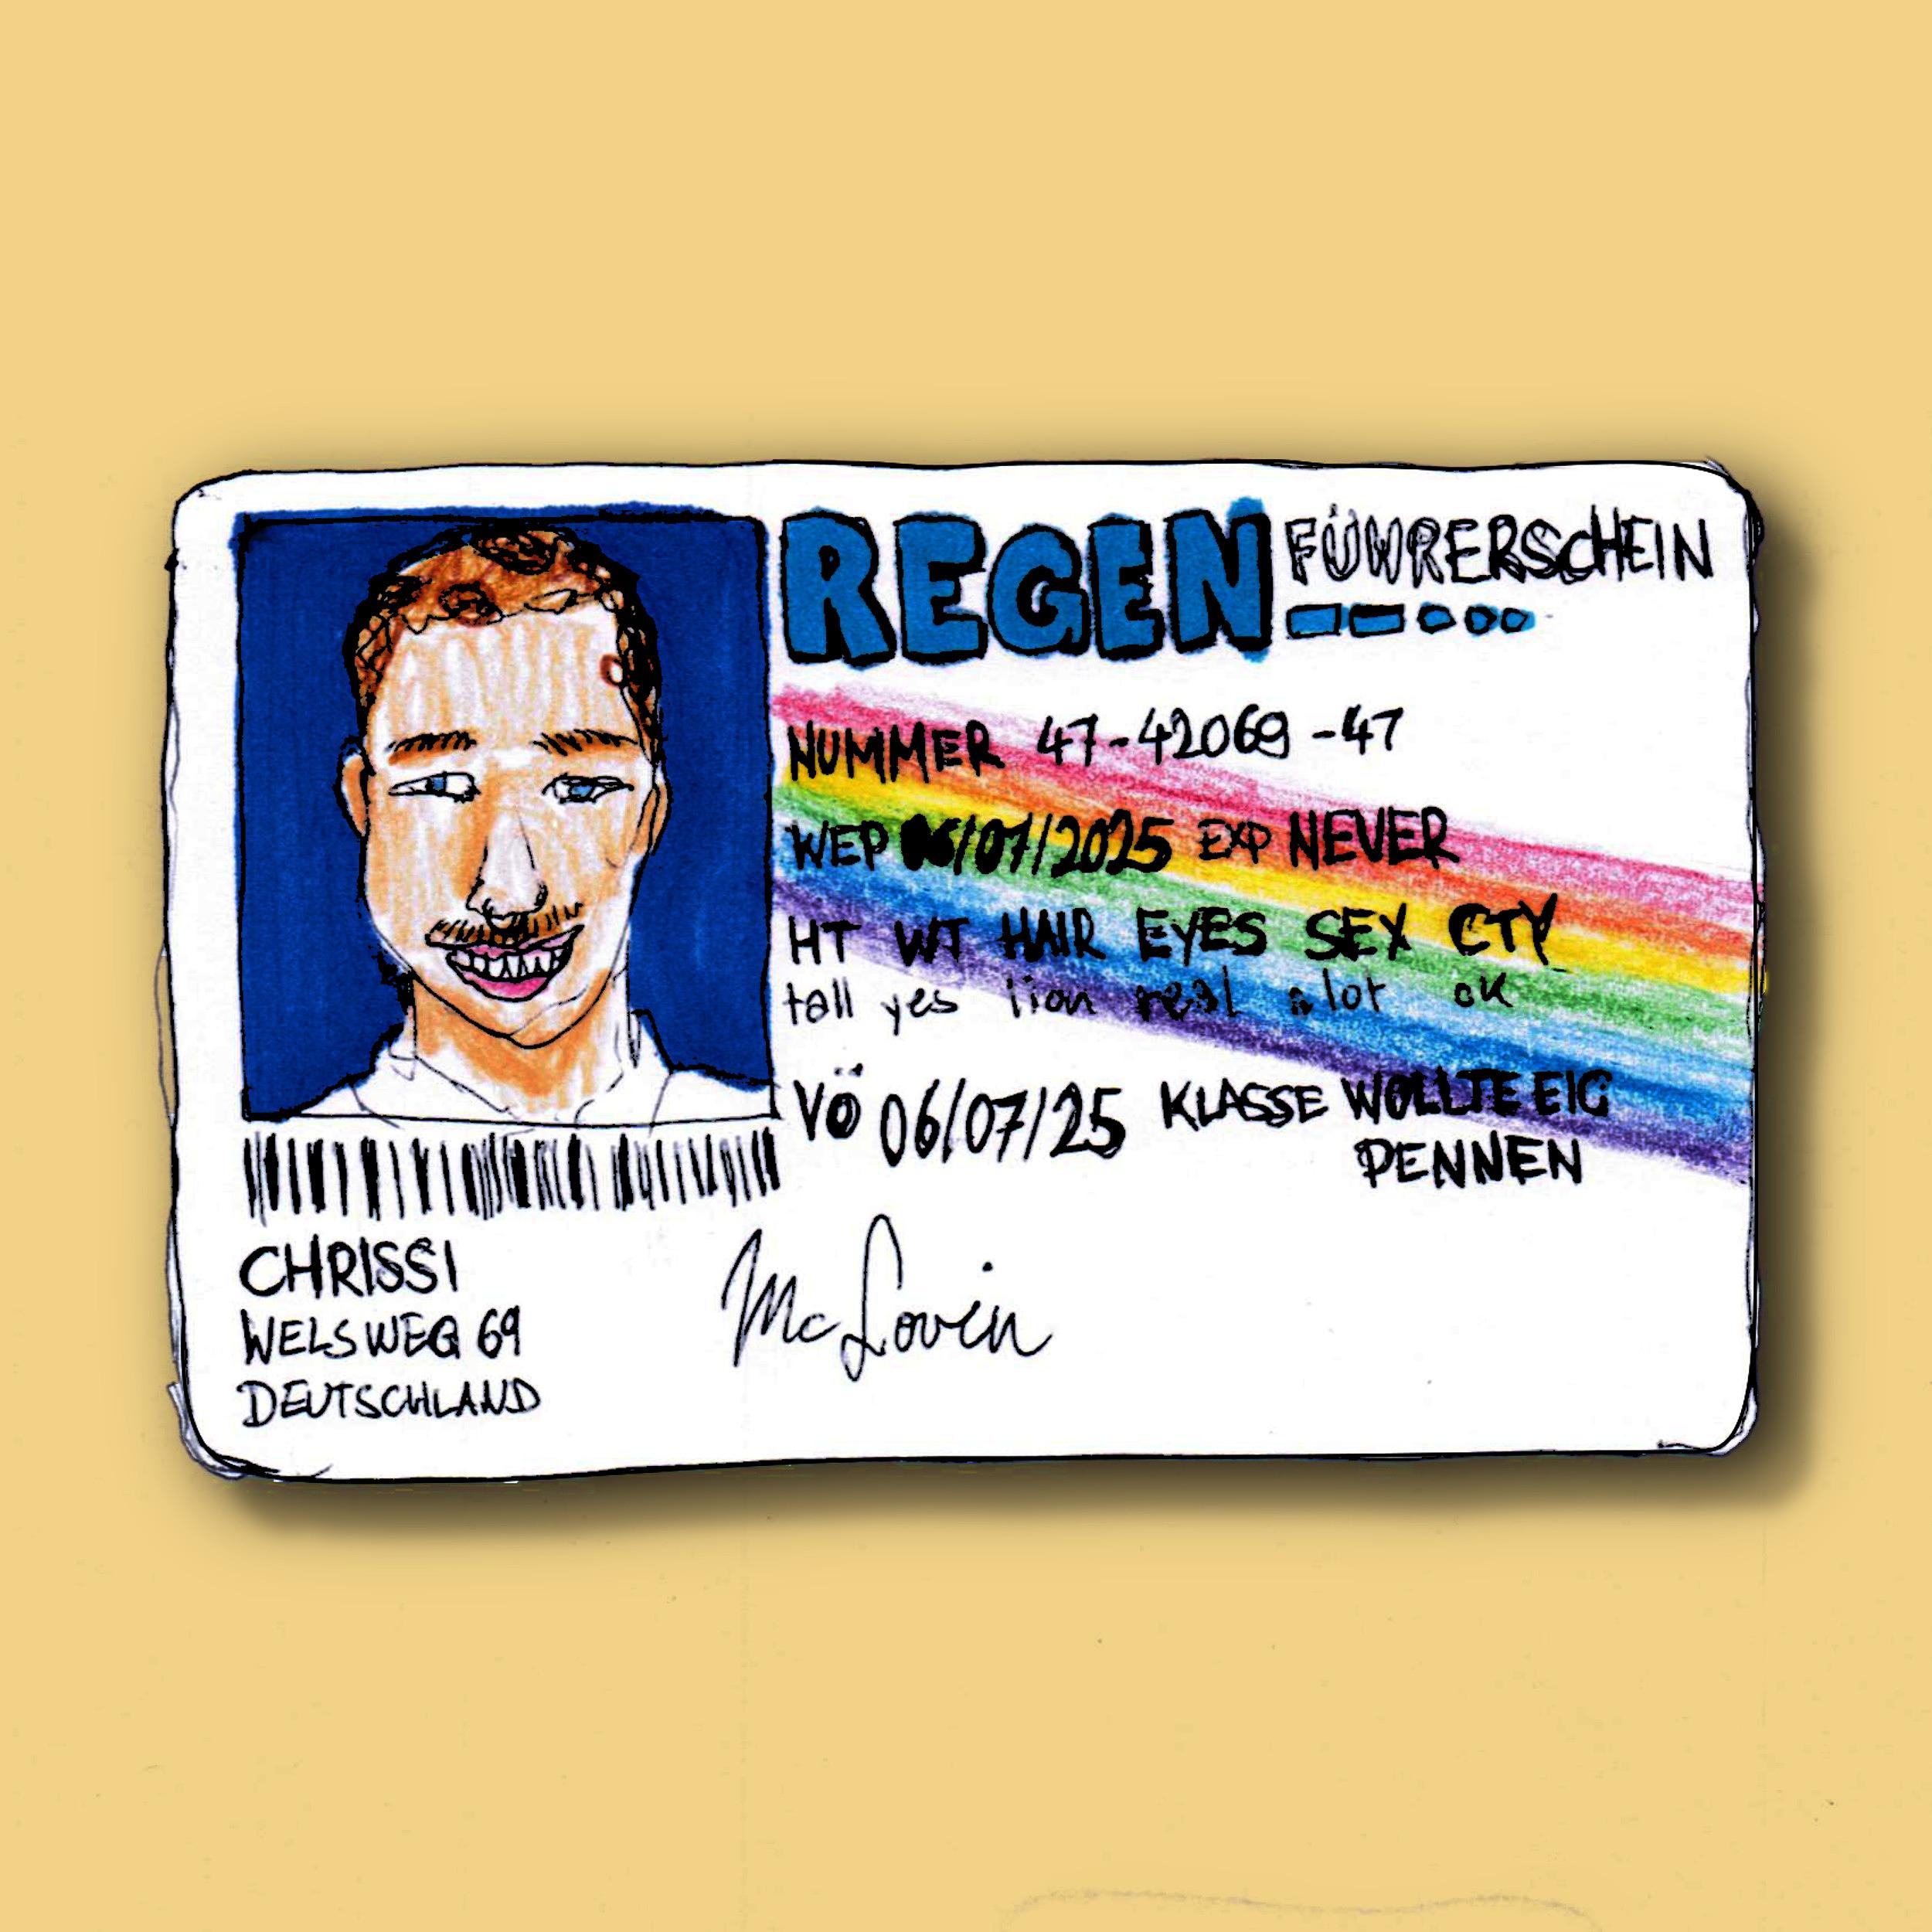 REGEN FÜHRERSCHEIN
NUMMER 47-42069-47
WEP 06/07/2025 EXP NEVER
HT WT HAIR EYES SEX CTY
tall yes iion real a lot ok
VÖ 06/07/25 KLASSE WOLLTE EIG
PENNEN
CHRISSI
WELSWEG 69
DEUTSCHLAND
McLovin